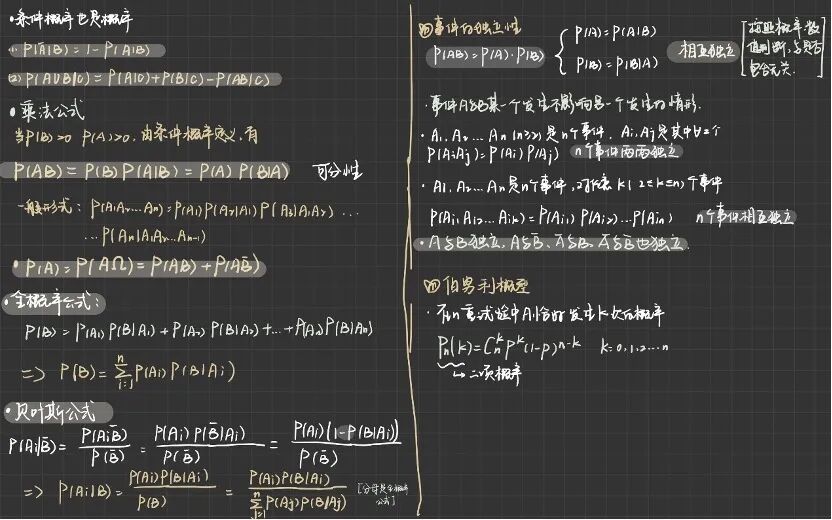 ·条件概率也是概率
(1) P(Ā|B)=1-P(A|B)
(2) P(A∪B|C)=P(A|C)+P(B|C)-P(AB|C)
·乘法公式
当P(B)>0 P(A)>0,由条件概率定义,有
P(AB)=P(B)P(A|B)=P(A)P(B|A) 可分性
一般形式:P(A₁A₂…Aₙ)=P(A₁)P(A₂|A₁)P(A₃|A₁A₂)…
…P(Aₙ|A₁A₂…Aₙ₋₁)
·P(A)=P(AΩ)=P(AB)+P(AB̄)
·全概率公式:
P(B)=P(A₁)P(B|A₁)+P(A₂)P(B|A₂)+…+P(Aₙ)P(B|Aₙ)
=> P(B)=∑ⁿᵢ₌₁P(Aᵢ)P(B|Aᵢ)
·贝叶斯公式
P(Aᵢ|B̄)=P(AᵢB̄)/P(B̄)=P(Aᵢ)P(B̄|Aᵢ)/P(B̄)=P(Aᵢ)(1-P(B|Aᵢ))/P(B̄)
=> P(Aᵢ|B)=P(Aᵢ)P(B|Aᵢ)/P(B)=P(Aᵢ)P(B|Aᵢ)/∑ⁿⱼ₌₁P(Aⱼ)P(B|Aⱼ) [分母是全概率
公式]
事件的独立性
P(AB)=P(A)·P(B) { P(A)=P(A|B)
P(B)=P(B|A) 相互独立
概率数
值判断,与是否
包含无关.
·事件A与B某一个发生不影响另一个发生的情形.
·A₁,A₂…Aₙ(n≥2)是n个事件,Aᵢ,Aⱼ是其中∀2个
P(AᵢAⱼ)=P(Aᵢ)P(Aⱼ) n个事件两两独立
·A₁,A₂…Aₙ是n个事件,对任意k(2≤k≤n)个事件
P(Aᵢ₁Aᵢ₂…Aᵢₖ)=P(Aᵢ₁)P(Aᵢ₂)…P(Aᵢₙ) n个事件相互独立
·A与B独立,A与B̄、Ā与B、Ā与B̄也独立.
伯努利概型
·在n重试验中A恰好发生k次的概率
Pₙ(k)=Cₙᵏpᵏ(1-p)ⁿ⁻ᵏ k=0,1,2…n
↳二项概率